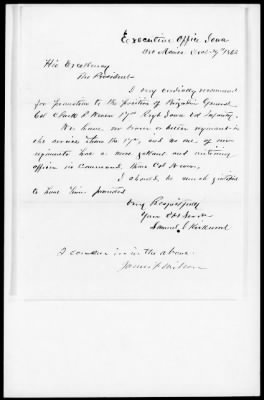 Executive Office, Iowa
Des Moines Oct 7th 186
His Excellency
The President
I very cordially recommend
for promotion to the position of Brigadier General
Col Clark R Wever 17th Regt Iowa Vol Infantry.
We have no braver or better regiment in
the service than the 17th, and no one of our
regiments has a more gallant and
officer in command, than Col Wever.
I should be much gratified
to have him promoted
Very Respectfully
Your Obt Servt
Samuel J Kirkwood
I concur in the above.
James F Wilson